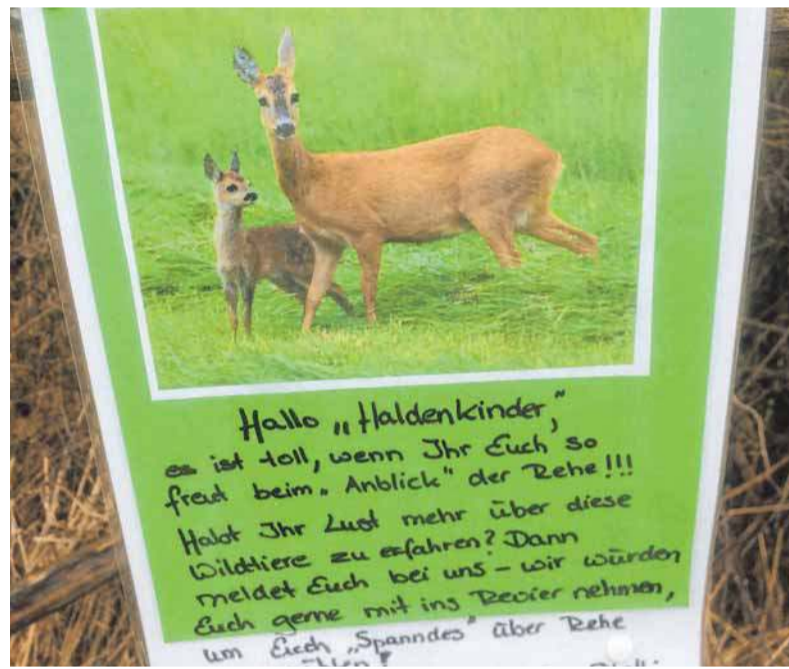 Hallo „Haldenkinder",
es ist toll, wenn Ihr Euch so
freut beim „Anblick" der Rehe!!!
Habt Ihr Lust mehr über diese
Wildtiere zu erfahren? Dann
meldet Euch bei uns – wir würden
Euch gerne mit ins Revier nehmen,
um Euch „Spanndes" über Rehe